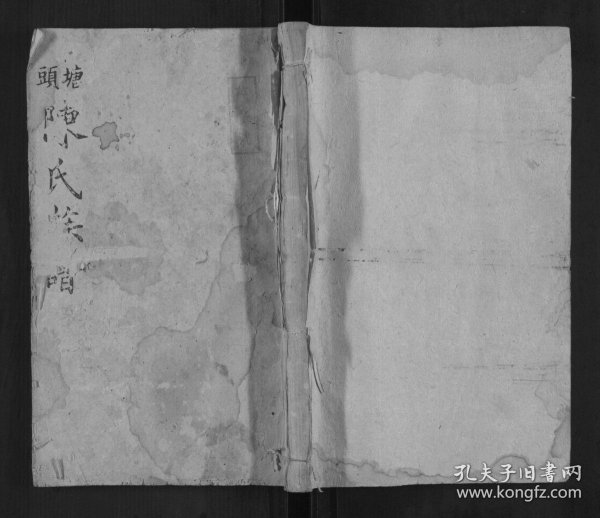 塘頭
陳氏族譜
孔夫子旧書网
www.kongfz.com